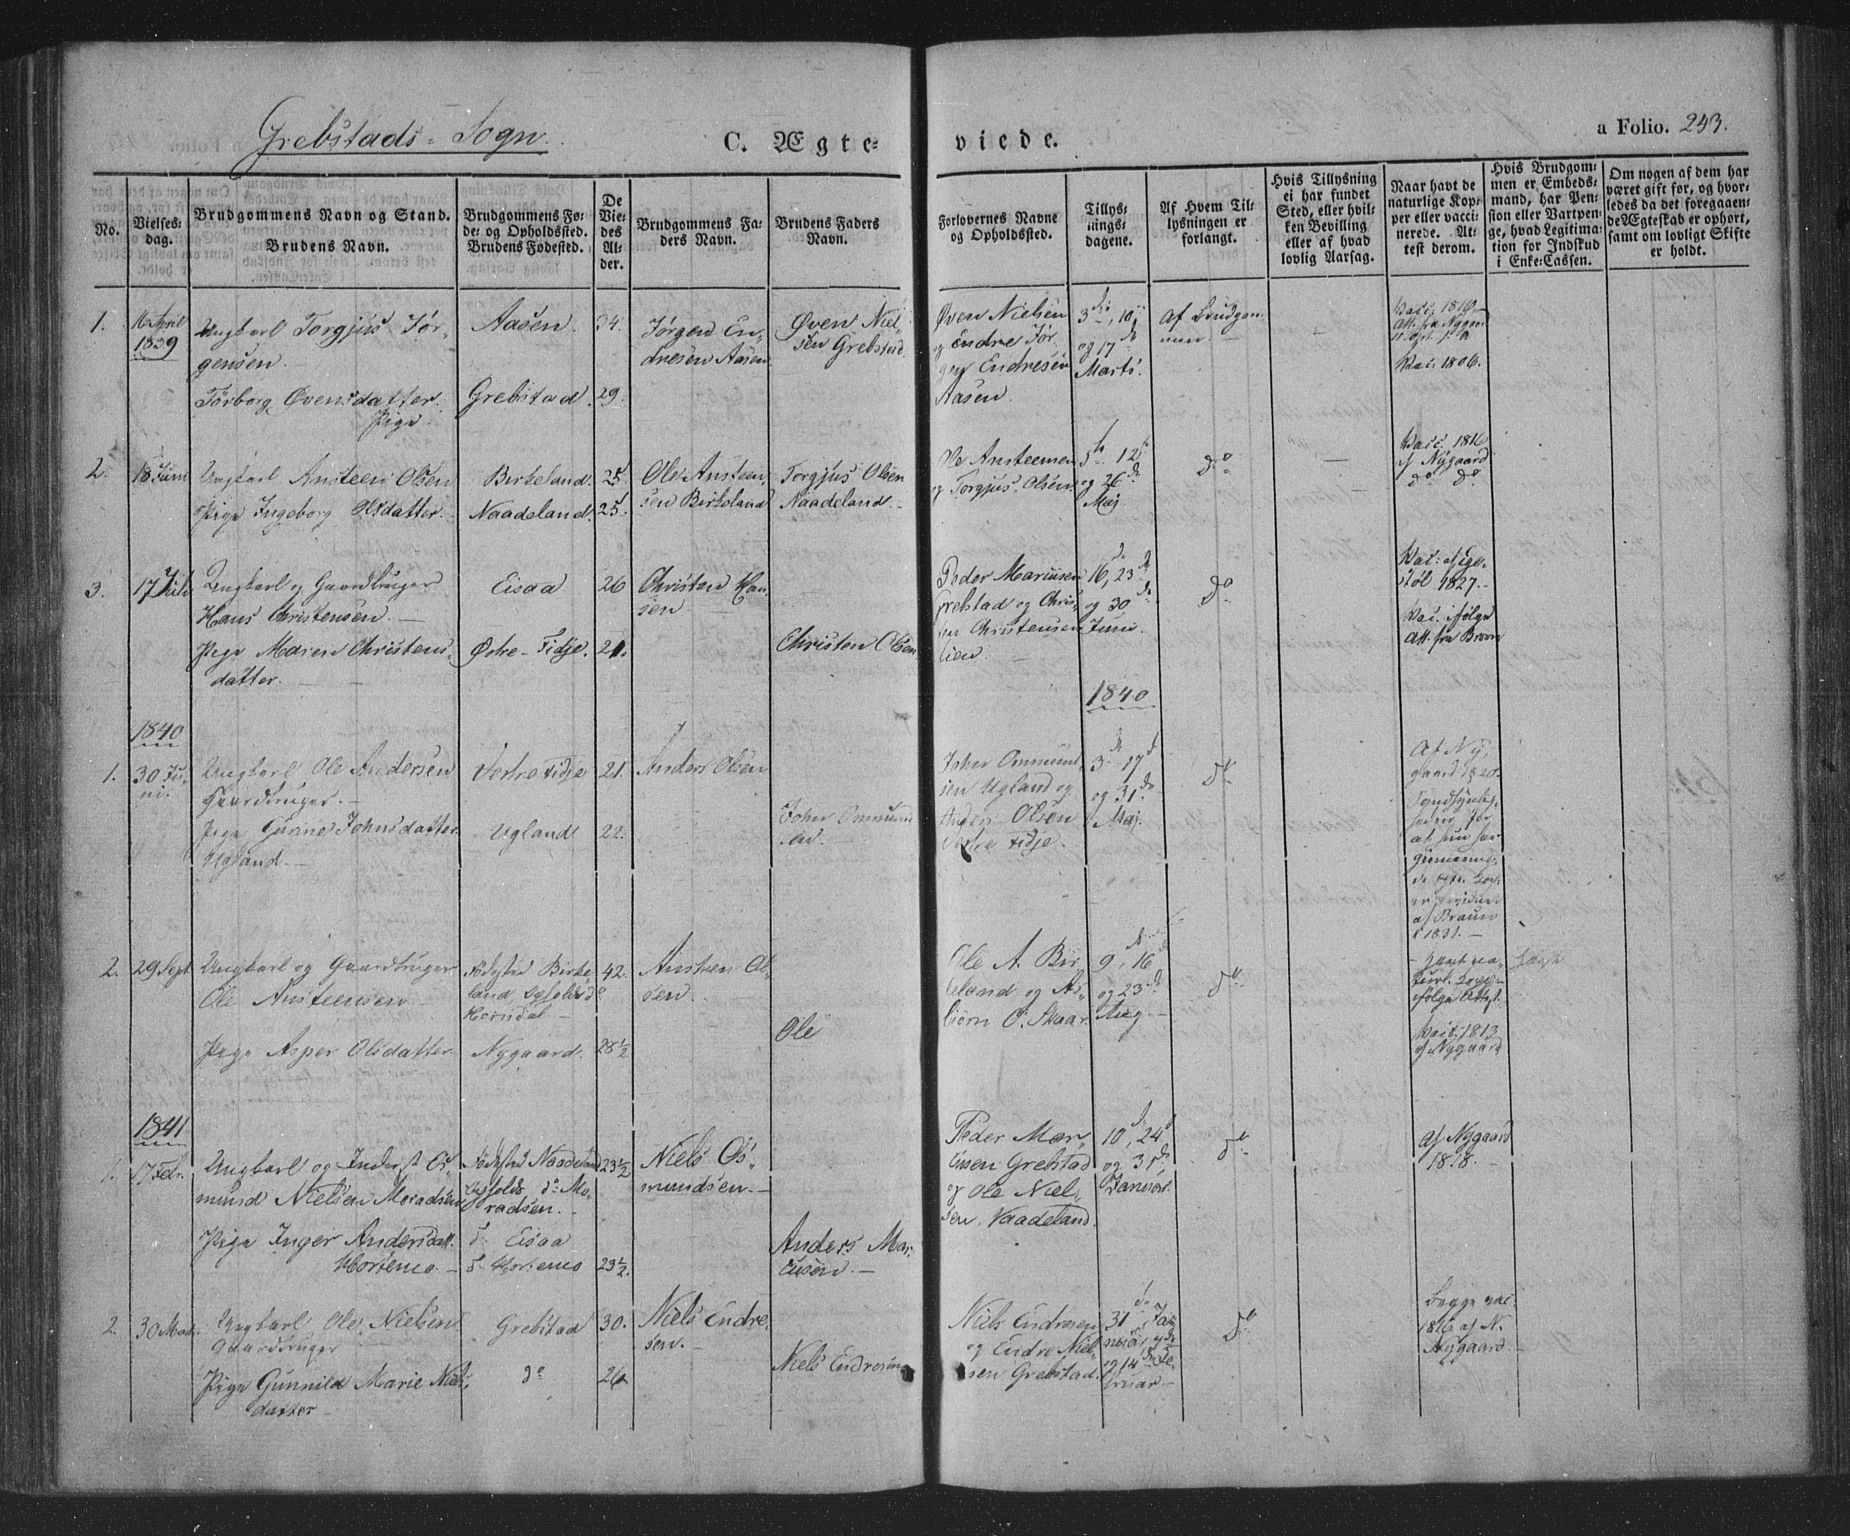 Grebstads Sogn.
C. Ægte-
viede.
a Folio. 243.
No.
Vielses-
dag.
Brudgommens Navn og Stand.
Brudens Navn.
Brudgommens Fø-
de- og Opholdssted.
Brudens Fødested.
De
Vie-
des
Al-
der.
Brudgommens Fa-
ders Navn.
Brudens Faders
Navn.
Forlovernes Navne
og Opholdssted.
Tillys-
nings-
dagene.
Af Hvem Til-
lysningen er
forlangt.
Hvis Tillysning
ei har fundet
Sted, eller hvil-
ken Bevilling
eller af hvad
lovlig Aarsag.
Naar havt de
naturlige Kop-
per eller vacci-
nerede. At-
test derom.
Hvis Brudgom-
men er Embeds-
mand, har Pen-
sion eller Vartpen-
ge, hvad Legitima-
tion for Indskud
i Enke-Cassen.
Om nogen af dem har
været gift før, og hvor-
ledes da det foregaaen-
de Ægteskab er ophørt,
samt om lovligt Skifte
er holdt.
1.
16 April
1839
Ungkarl Torgjus Jør-
gensen.
Aasen.
34.
Jørgen En-
dresen Aasen
Øven Niel-
sen Grebstad
Øven Nielsen
og Endre Jør-
Endresen
Aasen.
3die, 10
og 17de
Marts.
af Brudgom-
men
Vacc. 1816
Att. fra Nygaard
Vac: 1806.
Torborg Øvensdatter.
Pige
Grebstad
29.
2.
18 Juni
Ungkarl Ansteen Olsen
Birkeland.
25.
Ole Ansteen-
sen Birkeland
Torgjus Olsen
Naadeland.
Ole Ansteensen
og Torgjus Olsen
5te 12te
og 26de
Maj
do
Vacc: 1816
af Nygaard
do do
Pige Ingeborg Olsdatter.
Naadeland.
25.
3.
17 Juli
Ungkarl og Gaardbruger
Hans Christensen.
Eisaa
26
Christen Han-
sen
Peder Mariusen
Grebstad og Chris-
ten Christensen
Lien.
16, 23de
og 30de
Juni
do
Vac:
1827.
Vac. ifølge
Att. fra Bruun
Pige Maren Christens-
datter.
Øvre-Tidje.
21.
Christen Olsen
1840
1840
1.
30 Ju-
ni.
Ungkarl Ole Andersen
Gaardbruger.
Vestre Tidje
21.
Anders Olsen
John Ommund-
sen Ugland og
Anders Olsen
Vestre Tidje.
3de 17de
og 31de
Maj.
do
Af Ny-
gaard 1820.
for
at hun
af Bruun
1831.
Pige Gurine Johnsdatter
Ugland.
Ugland
22.
John Ommund-
sen.
2.
29 Sept
Ungkarl og Gaardbruger
Ole Ansteensen
Fødested Birke-
land, Opholdsd
Horndal
42.
Ansteen Ol-
sen.
Ole A. Bir-
keland og As-
biørn O. Skaar.
9, 16
og 23de
Aug.
do
havt na-
turl. Kop
ifølge Attest.
Vacc: 1813
af Nygaard
Pige Asper Olsdatter
Nygaard.
28½
Ole
1841
1.
17 Febr.
Ungkarl og Inderst Os-
mund Nielsen Moradsen
Fødested Naadeland
Opholds do Mo-
radsen.
23½
Niels Os-
mundsen.
Peder Mar-
Grebstad
og Ole Niel-
sen Naadeland.
10, 24
og 31de
Januar.
do
af Nygaard
1818.
Pige Inger Andersdatt.
Hortemo.
F. Eisaa
Hortemo
23½.
Anders Mar-
cusen.
2.
30 Mart.
Ungkarl Ole Nielsen
Gaardbruger
Grebstad
30.
Niels Endre-
sen.
Niels Endresen
og Endre Niel-
sen Grebstad.
31 Ja-
nuar, 7de
og 14de Fe-
bruar
do
begge vac.
1816 af N.
Nygaard.
Pige Gunnild Marie Niels-
datter
do
26
Niels Endresen